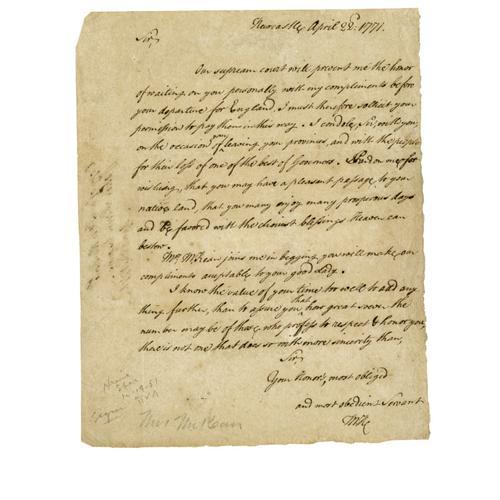 Newcastle April 22d. 1771.
Sir,
Our supream court will prevent me the honor
of waiting on you personally with my compliments before
your departure for England. I must therefore sollicit your
permission to pay them in this way. I condole, Sir, with you,
on the occasion of your leaving your province, and with the people
for their loss of one of the best of Governors. Pardon me for
wishing, that you may have a pleasant passage to your
native land, that you may enjoy many prosperous days
and be favored with the choicest blessings Heaven can
bestow.
Mrs. McKean joins me in begging you will make our
compliments acceptable to your good Lady.
I know the value of your time too well to add any
thing further, than to assure you, that how great soever the
number may be of those, who profess to respect & honor you,
there is not one that does so with more sincerity than,
Sir,
Your Honor's, most obliged
and most obedient Servant
in 1951
Mrs McKean